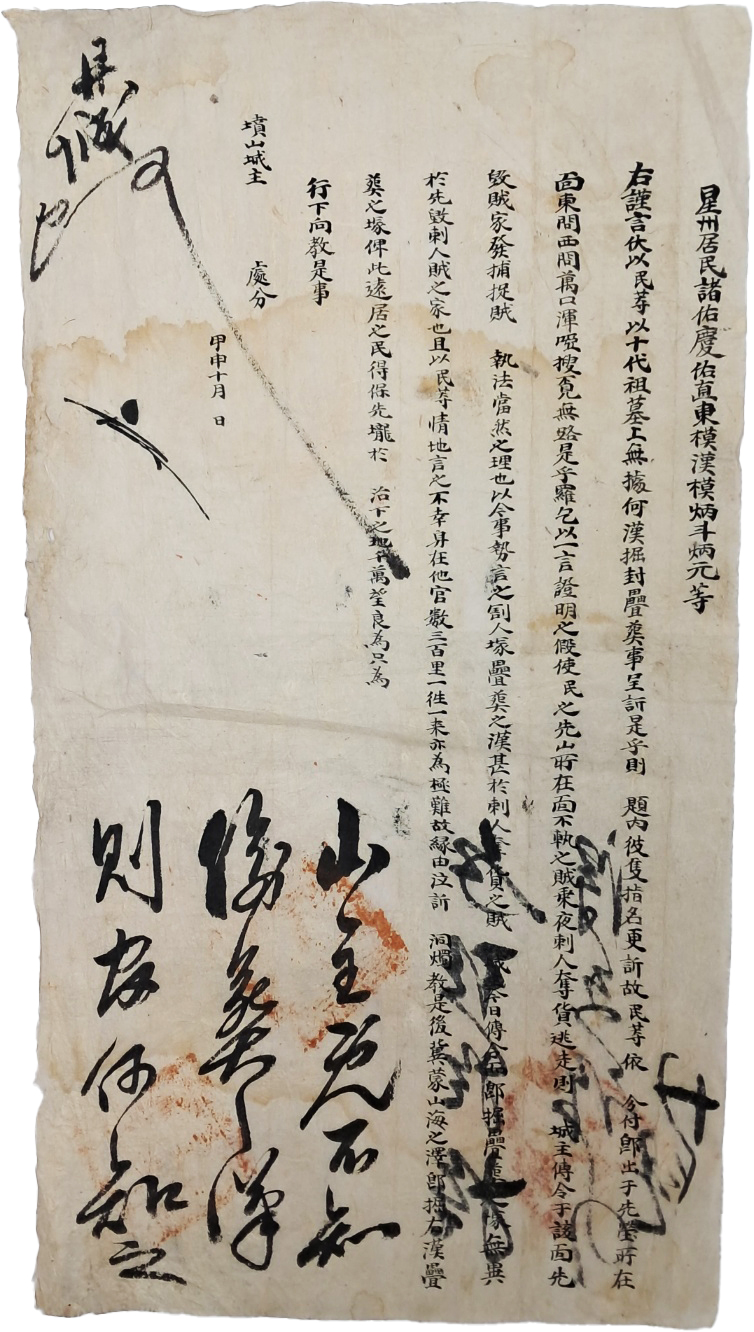 星州居民諸佑慶佑直東模漢模炳斗炳元等
右謹言伏以民等以十代祖墓上無據何漢掘封疊葬事呈訴是乎則 題內彼隻指名更訴故民等依 分付卽出于先塋所在
面東問西問萬口渾啞搜覓無路是乎羅乞以一言證明之假使民之先山所在面不軌之賊乘夜刺人奪貨逃走則 城主傳令于該面先
毀賊家發捕捉賊 執法當然之理也以今事勢言之割人塚疊葬之漢甚於刺人奪貨之賊 今日傳令 卽掘疊 塚無異
於先毀刺人賊之家也且以民等情地言之不幸身在他官數三百里一往一來亦爲極難故緣由泣訴 洞燭敎是後冀蒙山海之澤卽掘右漢疊
葬之塚俾此遠居之民得保先壠於 治下之地千萬望良爲只爲
行下向敎是事
墳山城主 處分
甲申十月 日
山主旣不知
偸葬之漢
則官何知之
十四